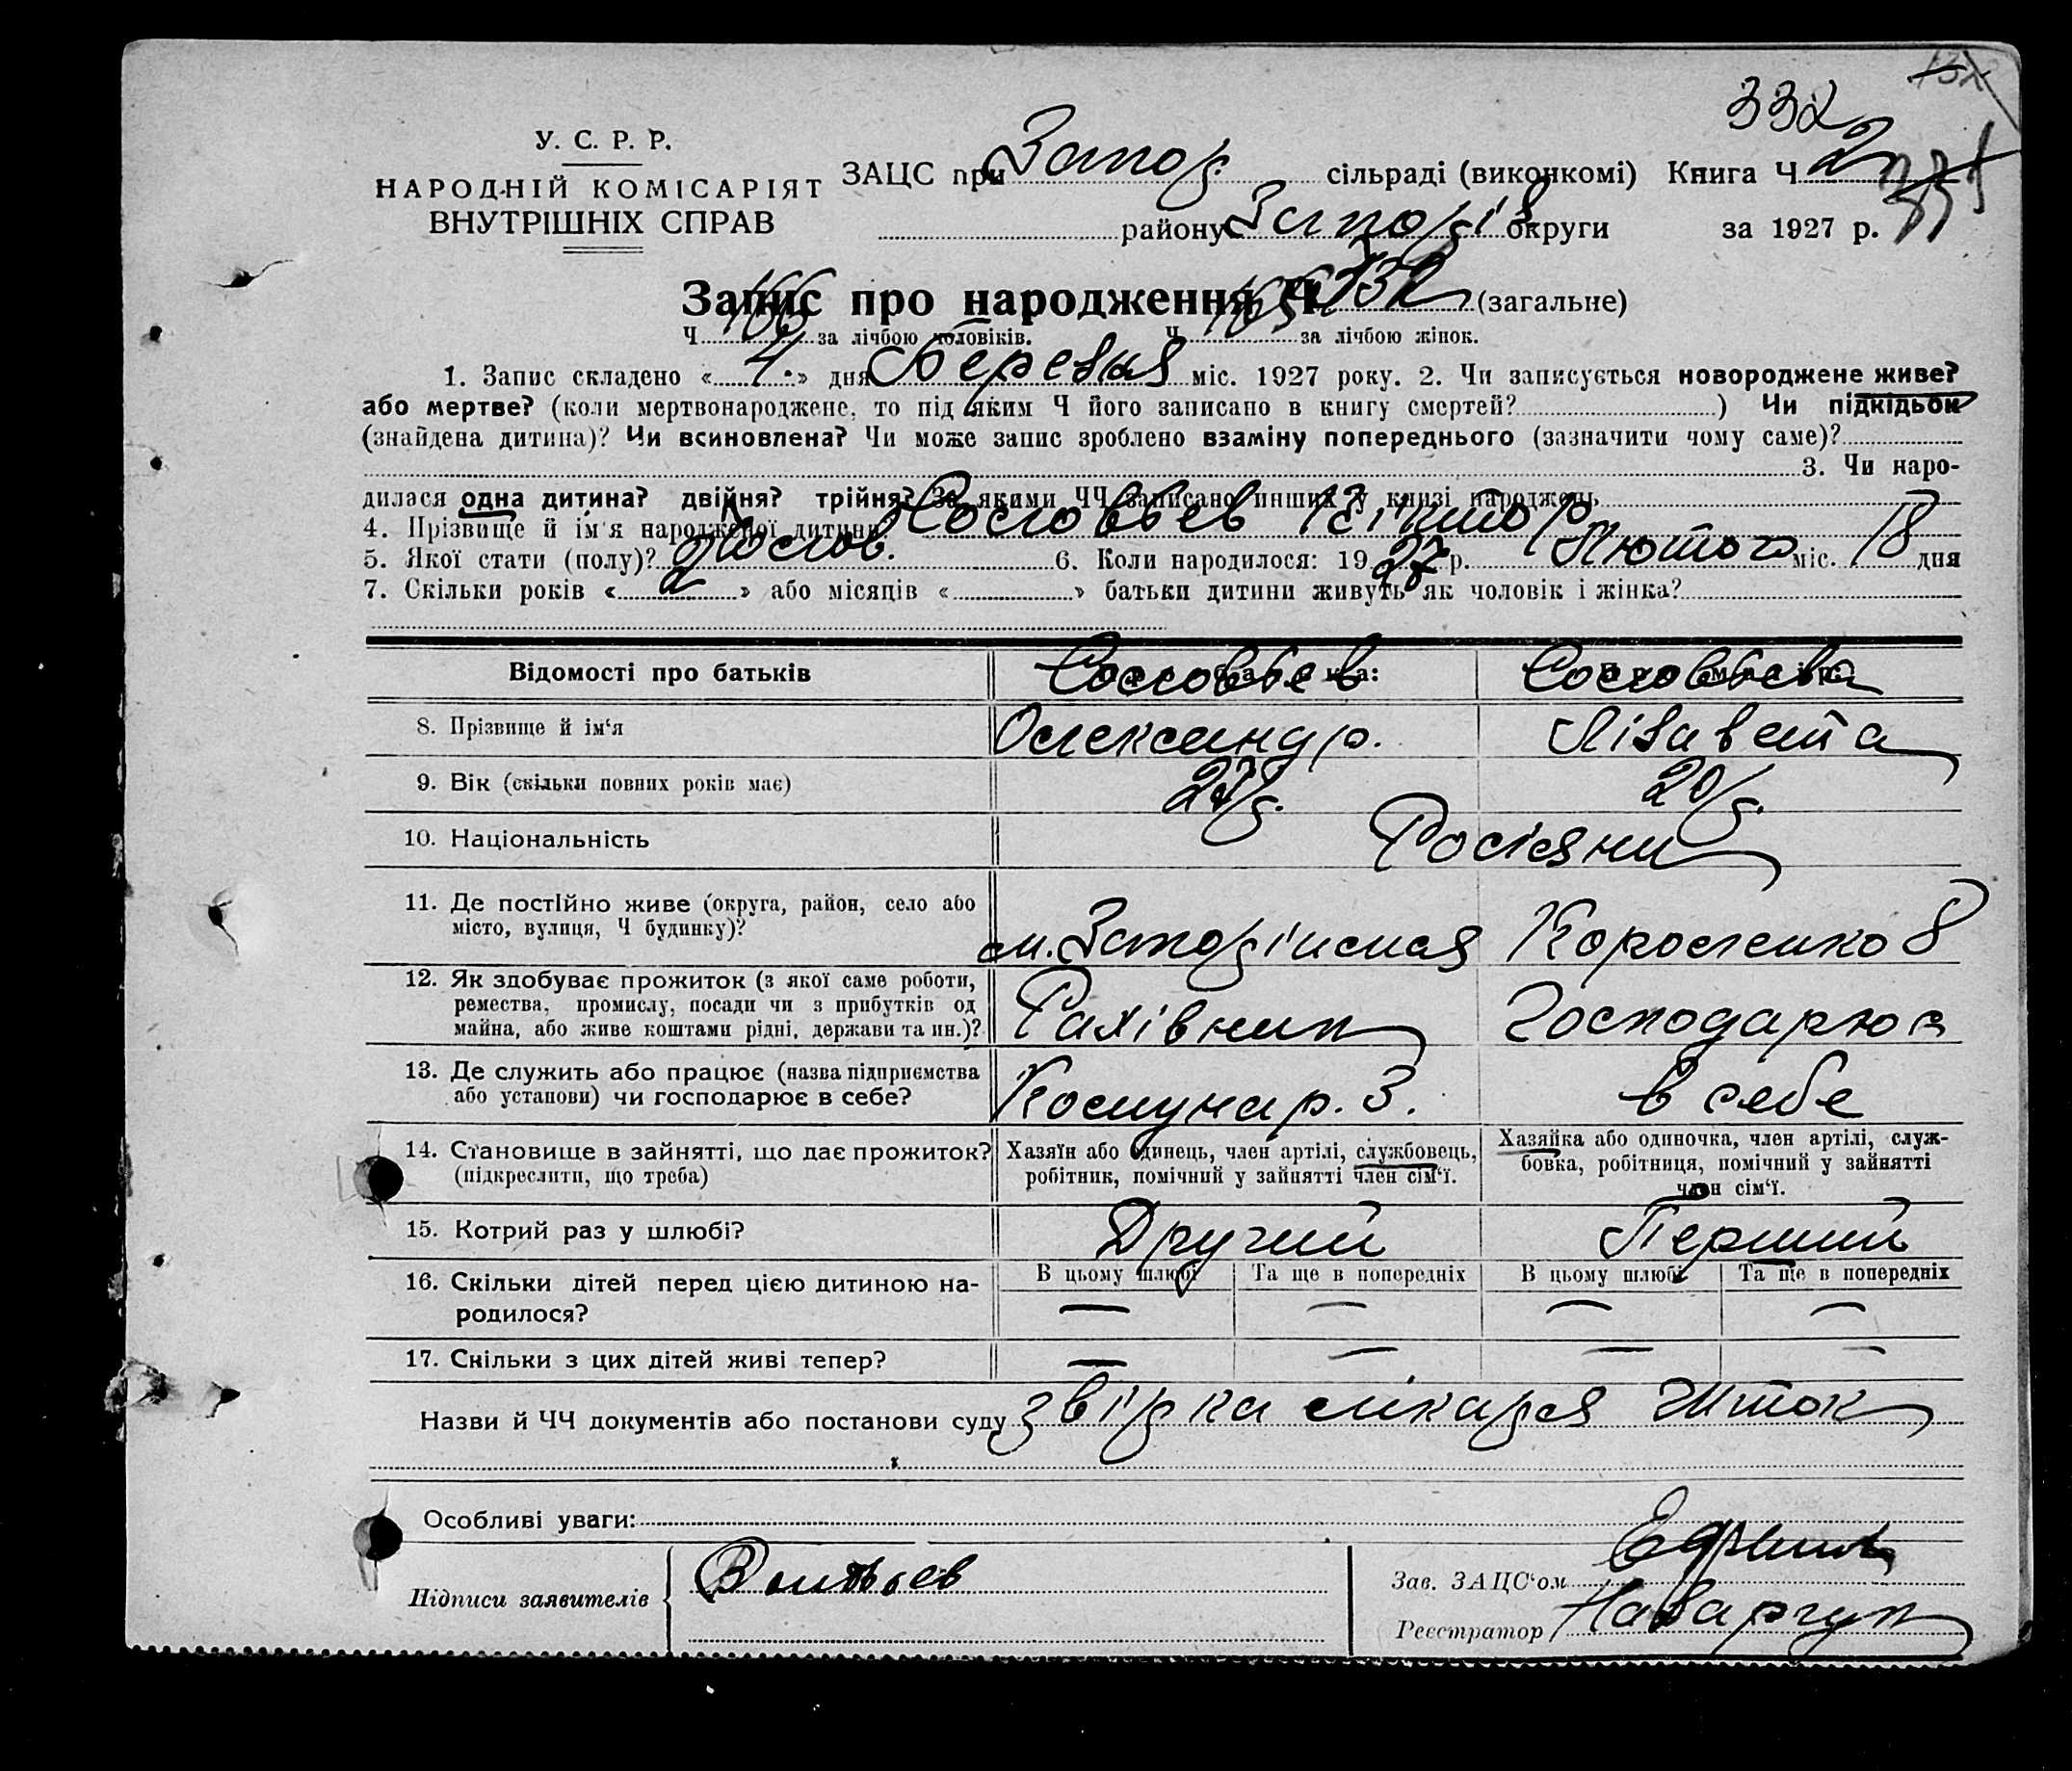 332
У. С. Р. Р.
НАРОДНІЙ КОМІСАРІЯТ
ВНУТРІШНІХ СПРАВ
ЗАЦС при Запор. сільраді (виконкомі) Книга Ч 2
району Запоріз округи за 1927 р.
Запис про народження Ч 332 (загальне)
Ч 166 за лічбою чоловіків. Ч 166 за лічбою жінок.
1. Запис складено «4» дня Березня міс. 1927 року. 2. Чи записується новороджене живе?
або мертве? (коли мертвонароджене, то під яким Ч його записано в книгу смертей? ) Чи підкідьок
(знайдена дитина)? Чи всиновлена? Чи може запис зроблено взаміну попереднього (зазначити чому саме)?
3. Чи наро-
дилася одна дитина? двійня? трійня? За якими ЧЧ записано инших у книзі народжень
4. Прізвище й ім'я народженої дитини Соловьев Віктор
5. Якої стати (полу)? Чолов. 6. Коли народилося: 1927 р. Лютого міс. 18 дня
7. Скільки років «2» або місяців « » батьки дитини живуть як чоловік і жінка?
Відомості про батьків Соловьев Соловьева
8. Прізвище й ім'я Олександр. Лізавета
9. Вік (скільки повних років має) 27 р. 20 р.
10. Національність Росіяни
11. Де постійно живе (округа, район, село або
місто, вулиця, Ч будинку)?
м. Запоріжжя Короленко 8
12. Як здобуває прожиток (з якої саме роботи,
ремества, промислу, посади чи з прибутків од
майна, або живе коштами рідні, держави та ин.)?
Рахівник Господарює
13. Де служить або працює (назва підприємства
або установи) чи господарює в себе?
Комунар. З. в себе
14. Становище в зайнятті, що дає прожиток?
(підкреслити, що треба)
Хазяїн або одинець, член артілі, службовець,
робітник, помічний у зайнятті член сім'ї.
Хазяйка або одиночка, член артілі, служ-
бовка, робітниця, помічний у зайнятті
член сім'ї.
15. Котрий раз у шлюбі? Другий Перший
16. Скільки дітей перед цією дитиною на-
родилося?
В цьому шлюбі Та ще в попередніх В цьому шлюбі Та ще в попередніх
— — — —
17. Скільки з цих дітей живі тепер? — — — —
Назви й ЧЧ документів або постанови суду звірка лікаря Житок
Особливі уваги:
Підписи заявителів
Зав. ЗАЦС'ом
Реєстратор